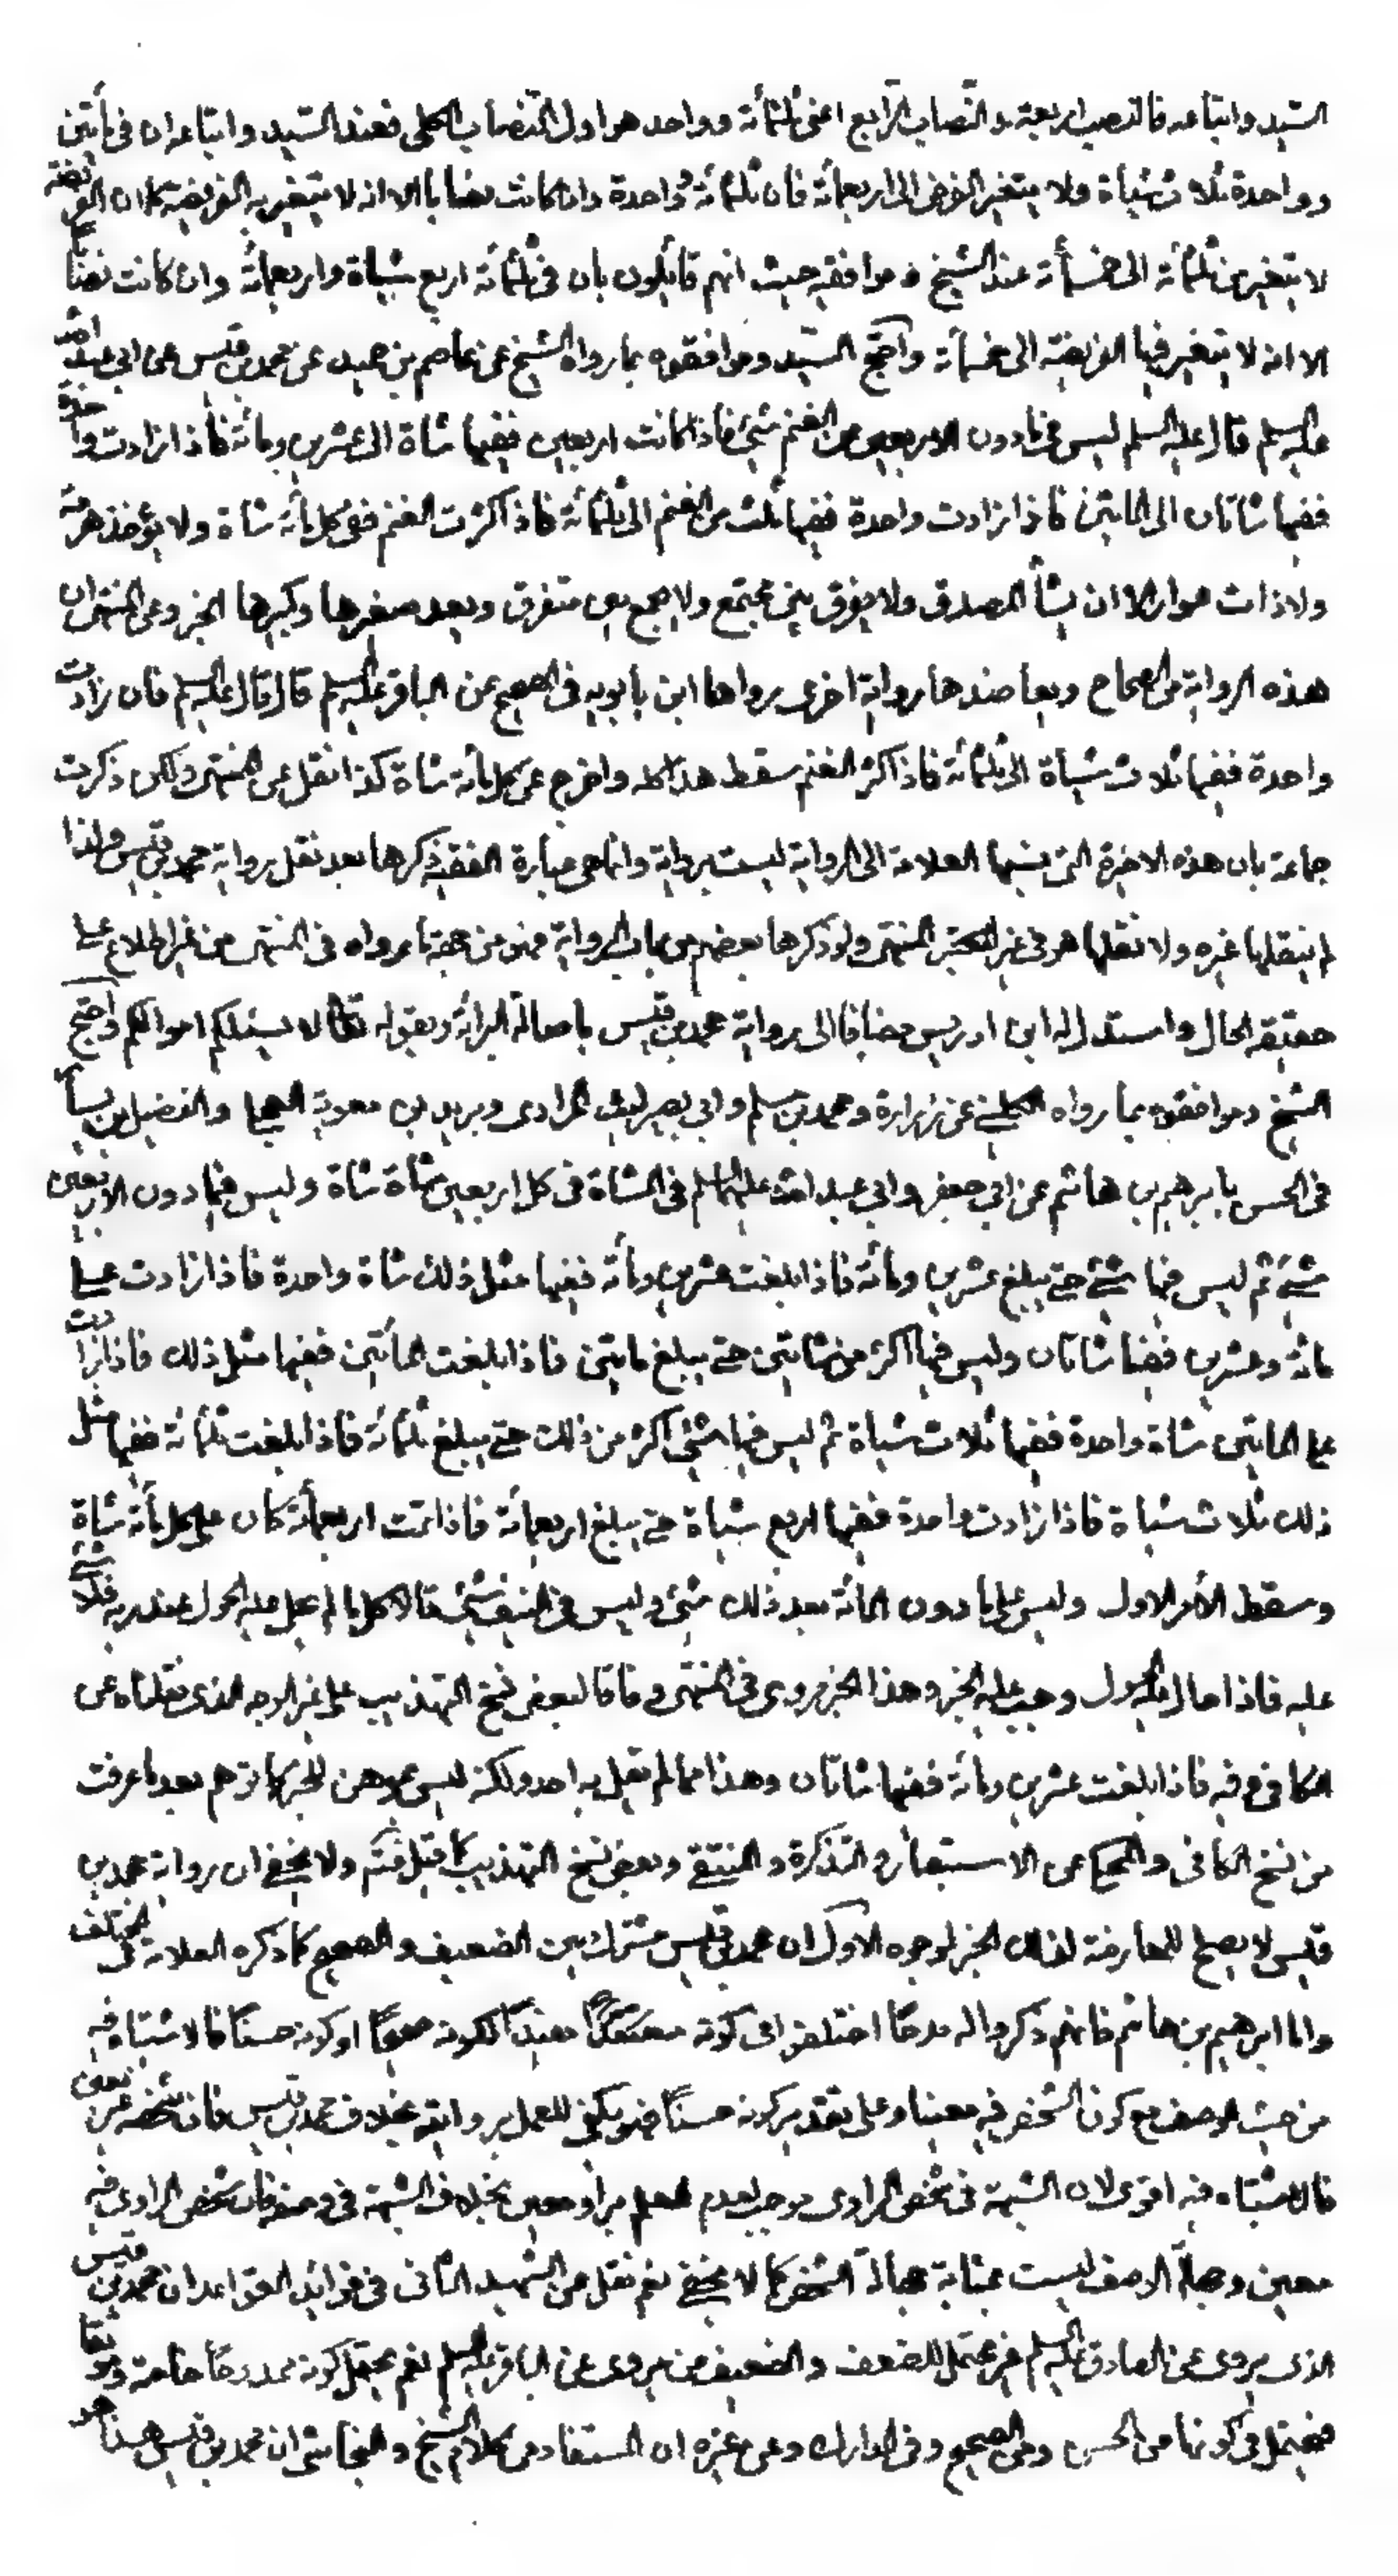 السيد واتباعه فالنصب اربعة والنصاب الرابع اعنى ثلثمأئة وواحد هو اول النصاب الكلى فعند السيد واتباعه ان فى مأتين
وواحدة ثلاث شياة ولا يتغير الفرض الى اربعمأئة فان ثلثمأئة وواحدة وان كانت نصابا الا انه لا يتغير به الفريضة كما ان الفريضة
لا يتغير من ثلثمأئة الى خمسمأئة عند الشيخ و موافقيه حيث انهم قائلون بان فى ثلثمأئة اربع شياة واربعمأئة وان كانت نصابا
الا انه لا يتغير فيها الفريضة الى خمسمأئة واحتج السيد وموافقوه بما رواه الشيخ عن عاصم بن حميد عن محمد بن قيس عن ابى عبد الله
عليه السلم قال عليه السلم ليس فيما دون الاربعين من الغنم شئ فاذا كانت اربعين ففيها شاة الى عشرين ومأئة فاذا زادت واحدة
ففيها شاتان الى المايتين فاذا زادت واحدة ففيها ثلث من الغنم الى ثلثمأئة فاذا كثرت الغنم ففى كل مأئة شاة ولا يؤخذ هرمة
ولا ذات عوار الا ان يشأ المصدق ولا يفرق بين مجتمع ولا يجمع بين متفرق ويعد صغيرها وكبيرها الخبر وعن المنتهى ان
هذه الرواية من الصحاح ويعاضدها رواية اخرى رواها ابن بابويه فى الصحيح عن الباقر عليه السلم قال قال عليه السلم فان زادت
واحدة ففيها ثلاث شياة الى ثلثمأئة فاذا كثر الغنم سقط هذا كله واخرج عن كل مأئة شاة كذا نقل عن المنتهى ولكن ذكرت
جماعة بان هذه الاخيرة التى نسبها العلامة الى الرواية ليست برواية وانما هى عبارة الفقيه ذكرها بعد نقل رواية محمد بن قيس ولذا
لم ينقلها غيره ولا نقلها هو فى غير المنتهى ولو ذكرها بعضهم من باب الرواية فهو من جهة ما رواه فى المنتهى من غير اطلاع على
حقيقة الحال واستدل له ابن ادريس مضافا الى رواية محمد بن قيس باصالة البرائة وبقوله تعالى لا يسئلكم اموالكم واحتج
الشيخ وموافقوه بما رواه الكلينى عن زرارة ومحمد بن مسلم وابى بصير ليث المرادى وبريد بن معوية العجلى والفضيل بن يسار
فى الحسن بابرهيم بن هاشم عن ابى جعفر وابى عبد الله عليهما السلم فى الشاة فى كل اربعين شاة شاة وليس فيما دون الاربعين
شئ ثم ليس فيها شئ حتى يبلغ عشرين ومأئة فاذا بلغت عشرين ومأئة ففيها مثل ذلك شاة واحدة فاذا زادت على
مائة وعشرين ففيها شاتان وليس فيها اكثر من شاتين حتى يبلغ مايتين فاذا بلغت المأتين ففيها مثل ذلك فاذا زادت
على المايتين شاة واحدة ففيها ثلاث شياة ثم ليس فيها شئ اكثر من ذلك حتى يبلغ ثلثمأئة فاذا بلغت ثلثمأئة ففيها مثل
ذلك ثلاث شياة فاذا زادت واحدة ففيها اربع شياة حتى يبلغ اربعمأئة فاذا تمت اربعمأئة كان على كل مأئة شاة
وسقط الأمر الاول وليس على ما دون المأئة بعد ذلك شئ وليس فى النيف شئ وقالا كل ما لم يحل عليه الحول عند ربه فلا شئ
عليه فاذا حال عليه الحول وجب عليه الخبر وهذا الخبر مروى فى المنتهى وفاقا لبعض نسخ التهذيب على غير الوجه الذى نقلناه عن
الكافى وفيه فاذا بلغت عشرين ومأئة ففيها شاتان وهذا مما لم يقل به احد ولكنه ليس موهن للخبر كما توهم بعد ما عرفت
من نسخ الكافى والمحكى عن الاستبصار والتذكرة والمنتقى وبعض نسخ التهذيب كما قيل فتم ولا يخفى ان رواية محمد بن
قيس لا يصلح للمعارضة لذلك الخبر لوجوه الاول ان محمد بن قيس مشترك بين الضعيف والصحيح كما ذكره العلامة فى المختلف
واما ابرهيم بن هاشم فانهم ذكروا له مدحا اختلفوا فى كونه معتمدا مفيدا لكونه صحيحا او كونه حسنا فالاشتباه فيه
من حيث الوصف مع كون الشخص فيه معينا وعلى تقدير كونه حسنا فهو يكفى للعمل بروايته بخلاف محمد بن قيس فان شخصه غير معين
فالاشتباه فيه اقوى لان الشبهة فى شخص الراوى يوجب لعدم العلم براو معين بخلاف الشبهة فى وصفه فان شخص الراوى فيه
معين وجهالة الوصف ليست بمثابة جهالة الشخص كما لا يخفى نعم نقل عن الشهيد الثانى فى فوائد القواعد ان محمد بن قيس
الذى يروى عن الصادق عليه السلم غير محتمل للضعف والضعيف من يروى عن الباقر عليه السلم نعم يحتمل كونه ممدوحا خاصة وموثقا
فيحتمل فى كونها من الحسن ومن الصحيح وفى المدارك وعن غيره ان المستفاد من كلام الشيخ والنجاشى ان محمد بن قيس هذا هو